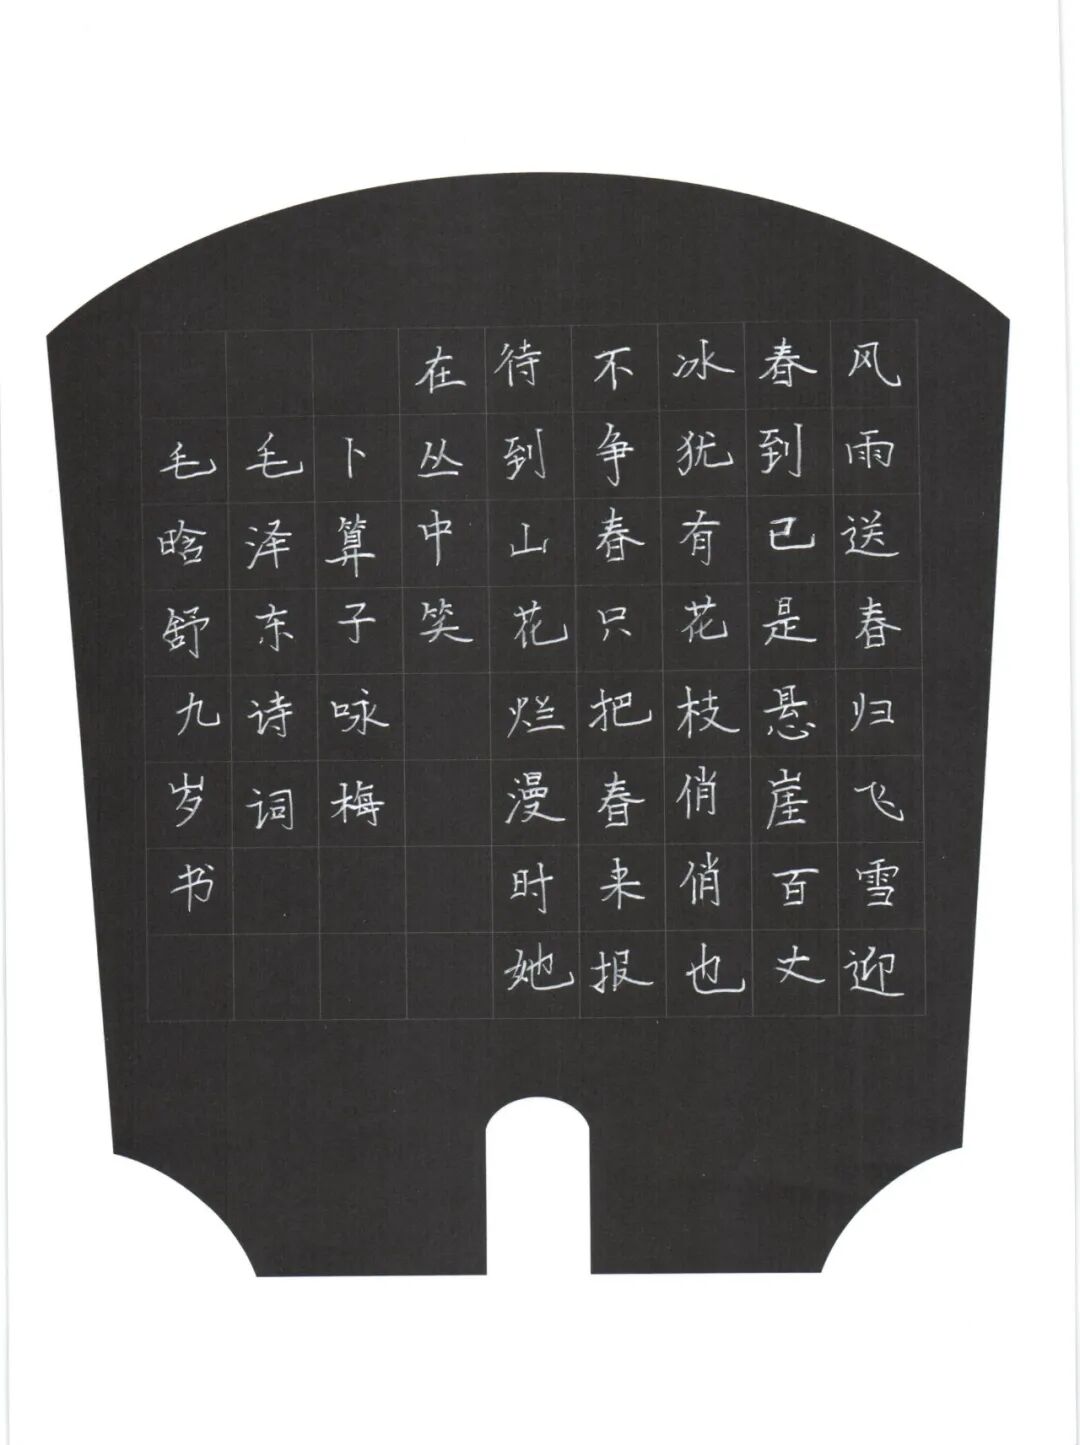 风雨送春归飞雪迎
春到已是悬崖百丈
冰犹有花枝俏俏也
不争春只把春来报
待到山花烂漫时她
在丛中笑
卜算子咏梅
毛泽东诗词
毛晗舒九岁书